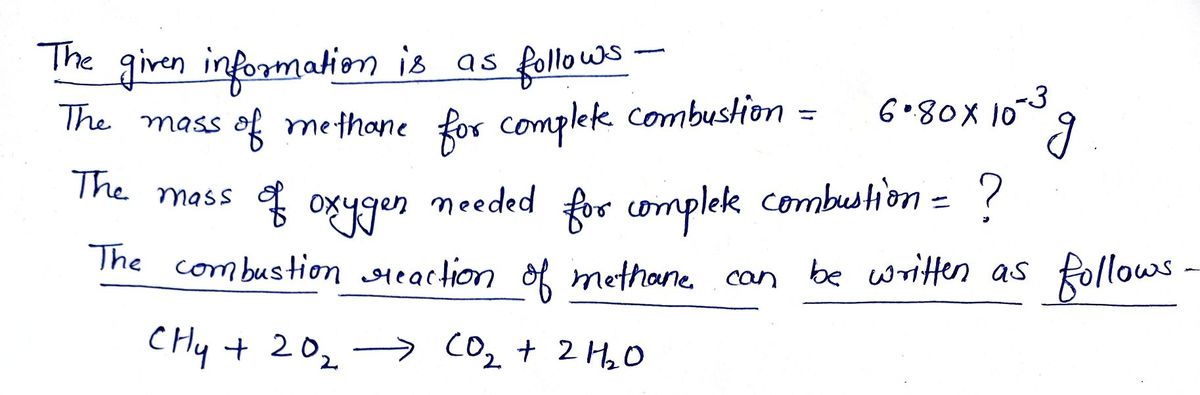 The given information is as follows –
The mass of methane for complete combustion = 6.80 x 10⁻³ g
The mass of oxygen needed for complete combustion = ?
The combustion reaction of methane can be written as follows -
CH₄ + 2O₂ → CO₂ + 2H₂O